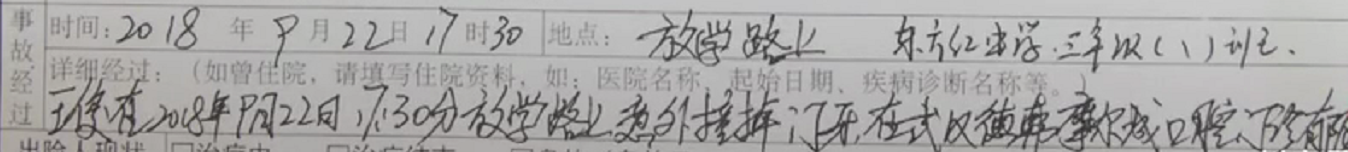 事故经过 时间：2018 年 9 月 22日 17 时30 地点： 放学路上 东方红小学 三年级（1）班
详细经过：（如曾住院，请填写住院资料，如：医院名称、起始日期、疾病诊断名称等。）
在2018年9月22日17:30分放学路上意外撞掉门牙，在武汉德韦摩尔城口腔门诊有限
出险人现状 □治疗中 □治疗结束